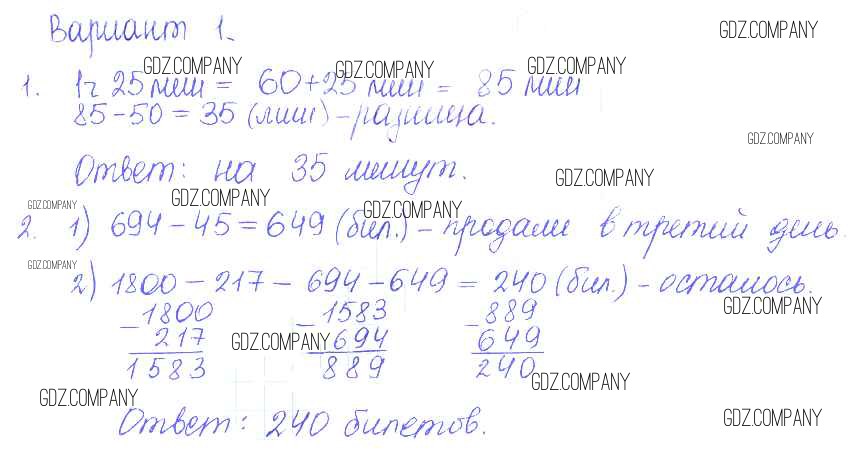 Вариант 1.
GDZ.COMPANY
1. 1ч 25 мин = 60+25 мин = 85 мин
GDZ.COMPANY GDZ.COMPANY GDZ.COMPANY
85-50 = 35 (мин) - разница.
GDZ.COMPANY
Ответ: на 35 минут.
GDZ.COMPANY
GDZ.COMPANY GDZ.COMPANY GDZ.COMPANY
2. 1) 694-45=649 (бил.) - продали в третий день.
GDZ.COMPANY
2) 1800-217-694-649 = 240 (бил.) - осталось.
GDZ.COMPANY
-1800 -1583 -889
217 694 649
GDZ.COMPANY
1583 889 240
GDZ.COMPANY
GDZ.COMPANY
Ответ: 240 билетов.
GDZ.COMPANY